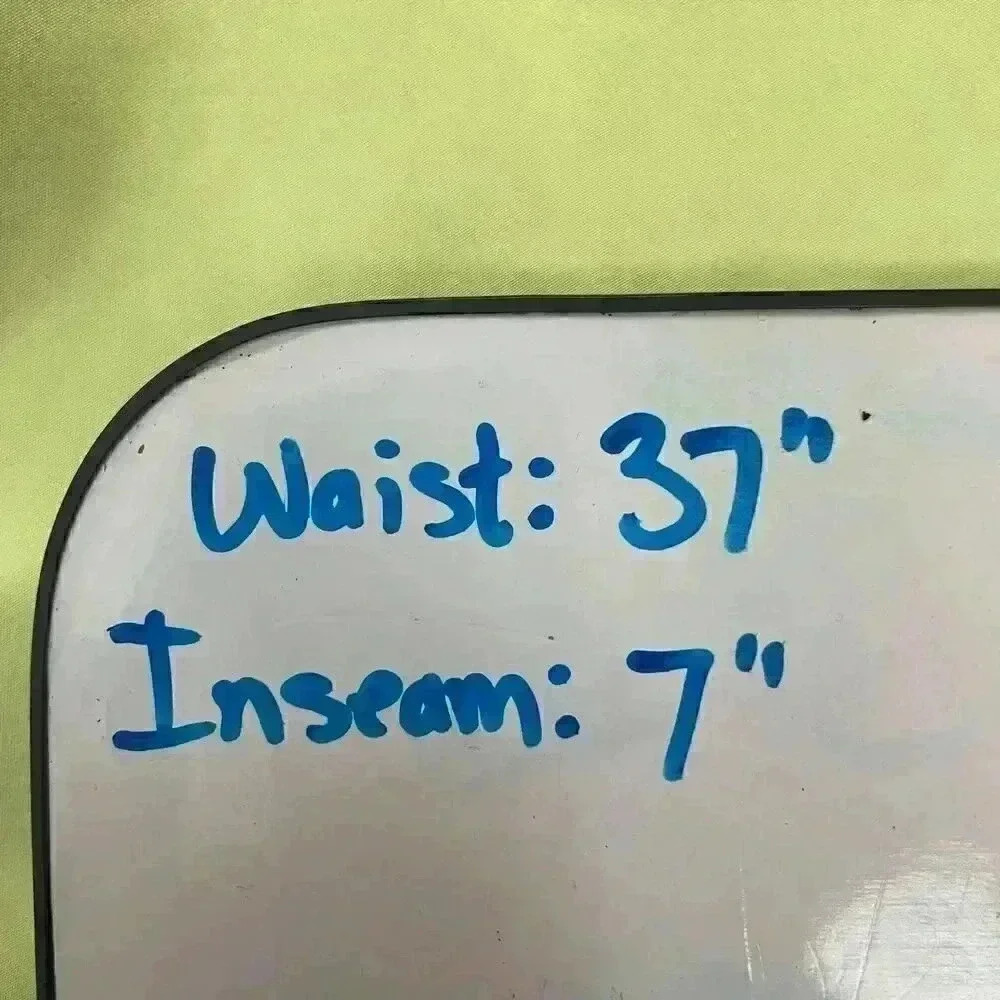 Waist: 37"
Inseam: 7"